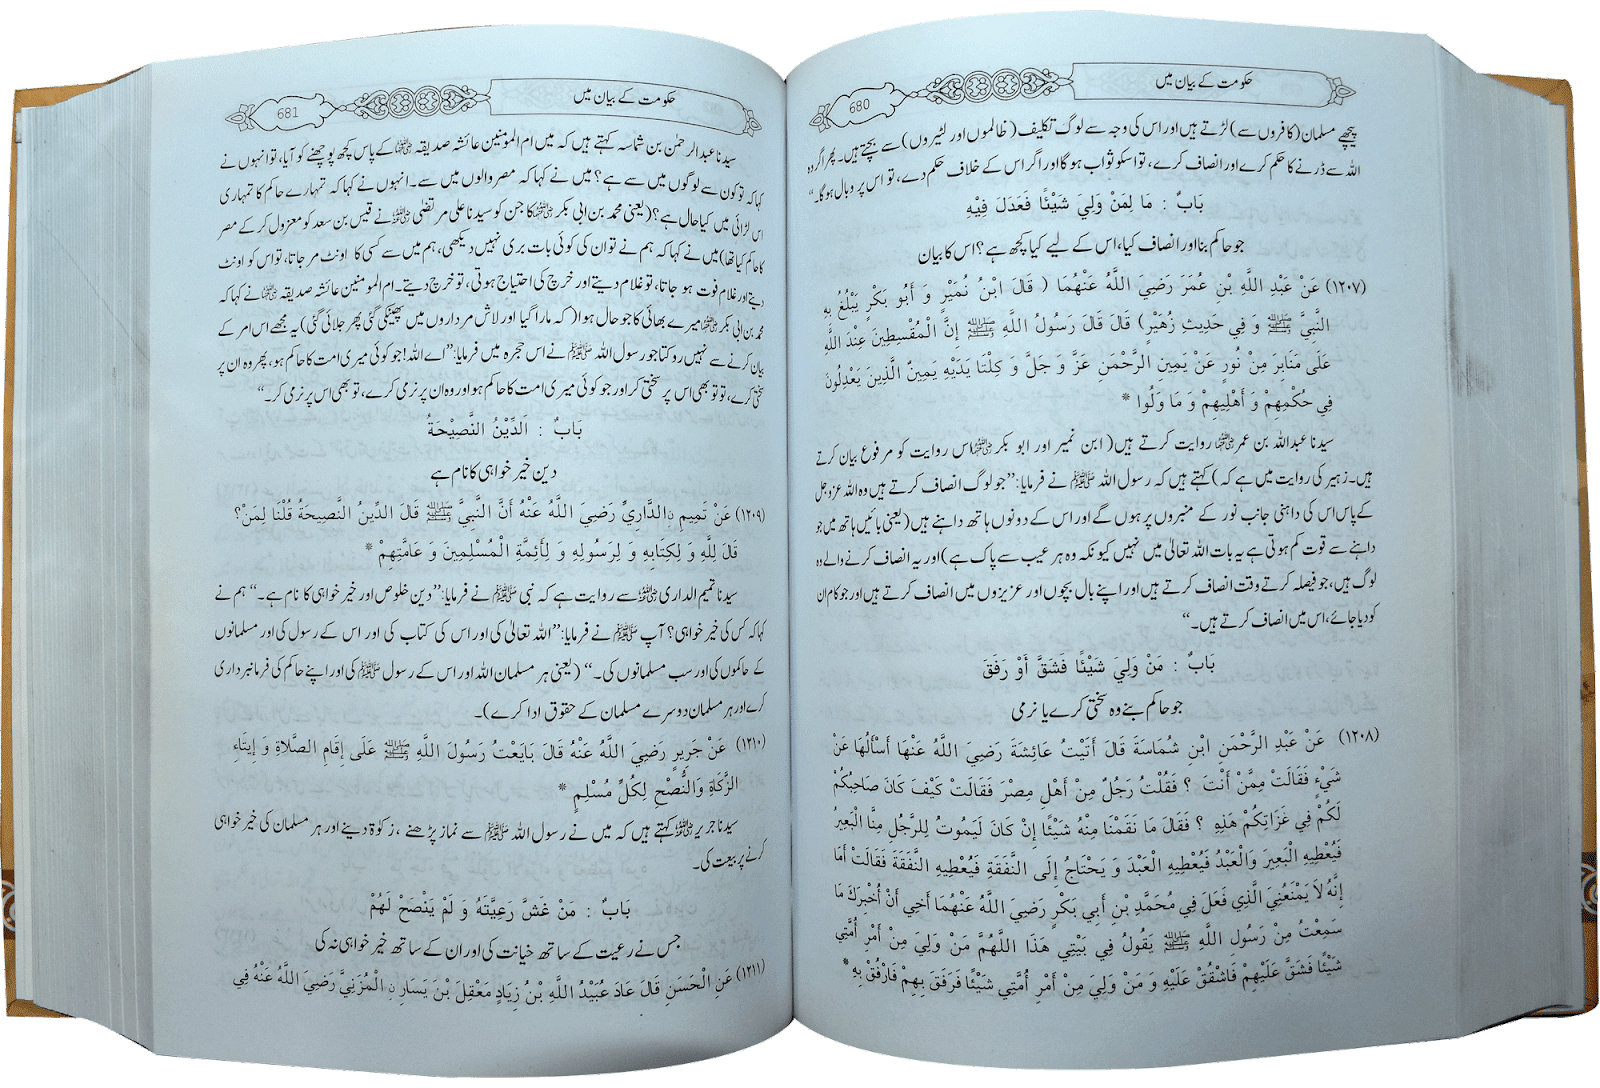 حکومت کے بیان میں
680
پیچھے مسلمان (کافروں سے) لڑتے ہیں اور اس کی وجہ سے لوگ تکلیف (ظالموں اور لٹیروں) سے بچتے ہیں۔ پھر اگر وہ
اللہ سے ڈرنے کا حکم کرے اور انصاف کرے، تو اسکو ثواب ہوگا اور اگر اس کے خلاف حکم دے، تو اس پر وبال ہوگا۔“
بَابٌ : مَا لِمَنْ وَلِيَ شَيْئًا فَعَدَلَ فِيْهِ
جو حاکم بنا اور انصاف کیا، اس کے لیے کیا کچھ ہے؟ اس کا بیان
(۱۲۰۷) عَنْ عَبْدِ اللَّهِ بْنِ عُمَرَ رَضِيَ اللَّهُ عَنْهُمَا ( قَالَ ابْنُ نُمَيْرٍ وَ أَبُو بَكْرٍ يَبْلُغُ بِهِ
النَّبِيَّ ﷺ وَ فِي حَدِيثِ زُهَيْرٍ) قَالَ قَالَ رَسُولُ اللَّهِ ﷺ إِنَّ الْمُقْسِطِينَ عِنْدَ اللَّهِ
عَلَى مَنَابِرَ مِنْ نُورٍ عَنْ يَمِينِ الرَّحْمَنِ عَزَّ وَ جَلَّ وَ كِلْتَا يَدَيْهِ يَمِينٌ الَّذِينَ يَعْدِلُونَ
فِي حُكْمِهِمْ وَ أَهْلِيهِمْ وَ مَا وَلُوا *
سیدنا عبداللہ بن عمر ؓ روایت کرتے ہیں (ابن نمیر اور ابو بکر ؓ اس روایت کو مرفوع بیان کرتے
ہیں۔ زہیر کی روایت میں ہے کہ) کہتے ہیں کہ رسول اللہ ﷺ نے فرمایا: ”جو لوگ انصاف کرتے ہیں وہ اللہ عزوجل
کے پاس اس کی داہنی جانب نور کے منبروں پر ہوں گے اور اس کے دونوں ہاتھ داہنے ہیں (یعنی بائیں ہاتھ میں جو
داہنے سے قوت کم ہوتی ہے یہ بات اللہ تعالیٰ میں نہیں کیونکہ وہ ہر عیب سے پاک ہے) اور یہ انصاف کرنے والے وہ
لوگ ہیں، جو فیصلہ کرتے وقت انصاف کرتے ہیں اور اپنے بال بچوں اور عزیزوں میں انصاف کرتے ہیں اور جو کام ان
کو دیا جائے، اس میں انصاف کرتے ہیں۔“
بَابٌ : مَنْ وَلِيَ شَيْئًا فَشَقَّ أَوْ رَفَقَ
جو حاکم بنے وہ سختی کرے یا نرمی
(۱۲۰۸) عَنْ عَبْدِ الرَّحْمَنِ ابْنِ شُمَاسَةَ قَالَ أَتَيْتُ عَائِشَةَ رَضِيَ اللَّهُ عَنْهَا أَسْأَلُهَا عَنْ
شَيْءٍ فَقَالَتْ مِمَّنْ أَنْتَ ؟ فَقُلْتُ رَجُلٌ مِنْ أَهْلِ مِصْرَ فَقَالَتْ كَيْفَ كَانَ صَاحِبُكُمْ
لَكُمْ فِي غَزَاتِكُمْ هَذِهِ ؟ فَقَالَ مَا نَقَمْنَا مِنْهُ شَيْئًا إِنْ كَانَ لَيَمُوتُ لِلرَّجُلِ مِنَّا الْبَعِيرُ
فَيُعْطِيهِ الْبَعِيرَ وَالْعَبْدُ فَيُعْطِيهِ الْعَبْدَ وَ يَحْتَاجُ إِلَى النَّفَقَةِ فَيُعْطِيهِ النَّفَقَةَ فَقَالَتْ أَمَا
إِنَّهُ لَا يَمْنَعُنِي الَّذِي فَعَلَ فِي مُحَمَّدِ بْنِ أَبِي بَكْرٍ رَضِيَ اللَّهُ عَنْهُمَا أَخِي أَنْ أُخْبِرَكَ مَا
سَمِعْتُ مِنْ رَسُولِ اللَّهِ ﷺ يَقُولُ فِي بَيْتِي هَذَا اللَّهُمَّ مَنْ وَلِيَ مِنْ أَمْرِ أُمَّتِي
شَيْئًا فَشَقَّ عَلَيْهِمْ فَاشْقُقْ عَلَيْهِ وَ مَنْ وَلِيَ مِنْ أَمْرِ أُمَّتِي شَيْئًا فَرَفَقَ بِهِمْ فَارْفُقْ بِهِ *
حکومت کے بیان میں
681
سیدنا عبدالرحمٰن بن شماسہ کہتے ہیں کہ میں ام المومنین عائشہ صدیقہ ؓ کے پاس کچھ پوچھنے کو آیا، تو انہوں نے
کہا کہ تو کون سے لوگوں میں سے ہے؟ میں نے کہا کہ مصر والوں میں سے۔ انہوں نے کہا کہ تمہارے حاکم کا تمہاری
اس لڑائی میں کیا حال ہے؟ (یعنی محمد بن ابی بکر ؓ کا جن کو سیدنا علی مرتضیٰ ؓ نے قیس بن سعد کو معزول کر کے مصر
کا حاکم کیا تھا) میں نے کہا کہ ہم نے تو ان کی کوئی بات بری نہیں دیکھی، ہم میں سے کسی کا اونٹ مر جاتا، تو اس کو اونٹ
دیتے اور غلام فوت ہو جاتا، تو غلام دیتے اور خرچ کی احتیاج ہوتی، تو خرچ دیتے۔ ام المومنین عائشہ صدیقہ ؓ نے کہا کہ
محمد بن ابی بکر ؓ میرے بھائی کا جو حال ہوا (کہ مارا گیا اور لاش مرداروں میں پھینکی گئی پھر جلائی گئی) یہ مجھے اس امر کے
بیان کرنے سے نہیں روکتا جو رسول اللہ ﷺ نے اس حجرہ میں فرمایا: ”اے اللہ! جو کوئی میری امت کا حاکم ہو، پھر وہ ان پر
سختی کرے، تو تو بھی اس پر سختی کر اور جو کوئی میری امت کا حاکم ہو اور وہ ان پر نرمی کرے، تو بھی اس پر نرمی کر۔“
بَابٌ : اَلدِّيْنُ النَّصِيْحَةُ
دین خیر خواہی کا نام ہے
(۱۲۰۹) عَنْ تَمِيمٍ نِ الدَّارِيِّ رَضِيَ اللَّهُ عَنْهُ أَنَّ النَّبِيَّ ﷺ قَالَ الدِّينُ النَّصِيحَةُ قُلْنَا لِمَنْ؟
قَالَ لِلَّهِ وَ لِكِتَابِهِ وَ لِرَسُولِهِ وَ لِأَئِمَّةِ الْمُسْلِمِينَ وَ عَامَّتِهِمْ *
سیدنا تمیم الداری ؓ سے روایت ہے کہ نبی ﷺ نے فرمایا: ”دین خلوص اور خیر خواہی کا نام ہے۔“ ہم نے
کہا کہ کس کی خیر خواہی؟ آپ ﷺ نے فرمایا: ”اللہ تعالیٰ کی اور اس کی کتاب کی اور اس کے رسول کی اور مسلمانوں
کے حاکموں کی اور سب مسلمانوں کی۔“ (یعنی ہر مسلمان اللہ اور اس کے رسول ﷺ کی اور اپنے حاکم کی فرمانبرداری
کرے اور ہر مسلمان دوسرے مسلمان کے حقوق ادا کرے)۔
(۱۲۱۰) عَنْ جَرِيرٍ رَضِيَ اللَّهُ عَنْهُ قَالَ بَايَعْتُ رَسُولَ اللَّهِ ﷺ عَلَى إِقَامِ الصَّلَاةِ وَ إِيتَاءِ
الزَّكَاةِ وَالنُّصْحِ لِكُلِّ مُسْلِمٍ *
سیدنا جریر ؓ کہتے ہیں کہ میں نے رسول اللہ ﷺ سے نماز پڑھنے، زکوٰۃ دینے اور ہر مسلمان کی خیر خواہی
کرنے پر بیعت کی۔
بَابٌ : مَنْ غَشَّ رَعِيَّتَهُ وَ لَمْ يَنْصَحْ لَهُمْ
جس نے رعیت کے ساتھ خیانت کی اور ان کے ساتھ خیر خواہی نہ کی
(۱۲۱۱) عَنِ الْحَسَنِ قَالَ عَادَ عُبَيْدُ اللَّهِ بْنُ زِيَادٍ مَعْقِلَ بْنَ يَسَارٍ نِ الْمُزَنِيَّ رَضِيَ اللَّهُ عَنْهُ فِي